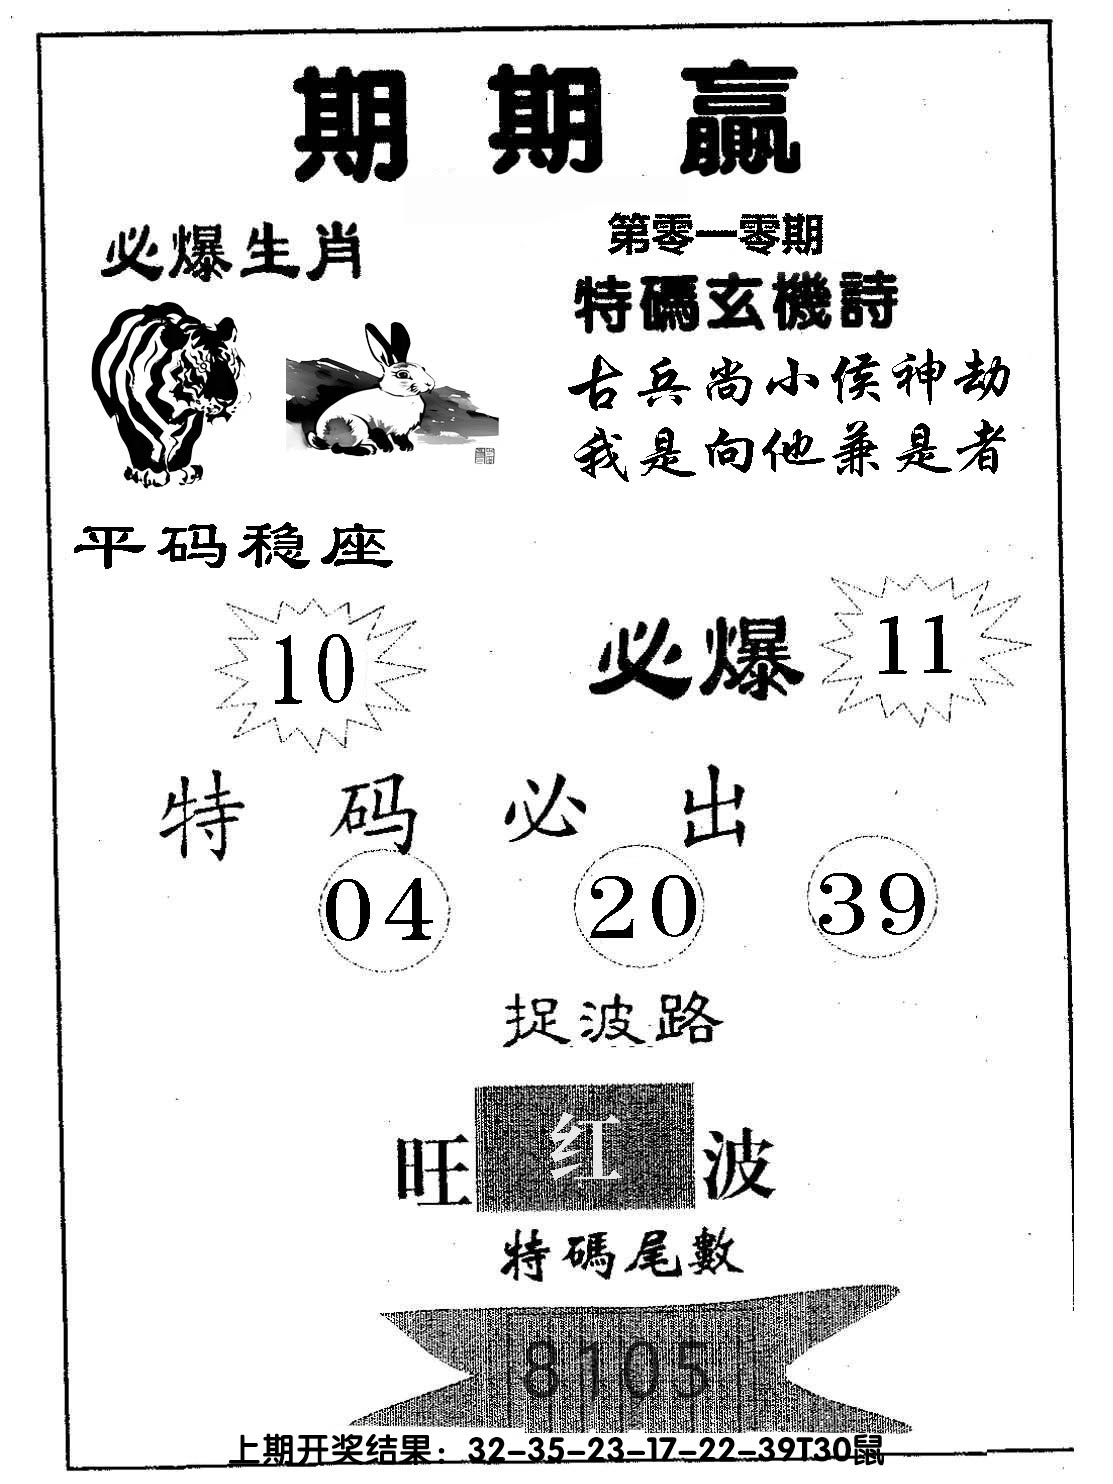 期期贏
必爆生肖
第零一零期
特碼玄機詩
古兵尚小侯神劫
我是向他兼是者
平码稳座
10
必爆 11
特码必出
04 20 39
捉波路
旺红波
特碼尾數
8105
上期开奖结果：32-35-23-17-22-39T30鼠